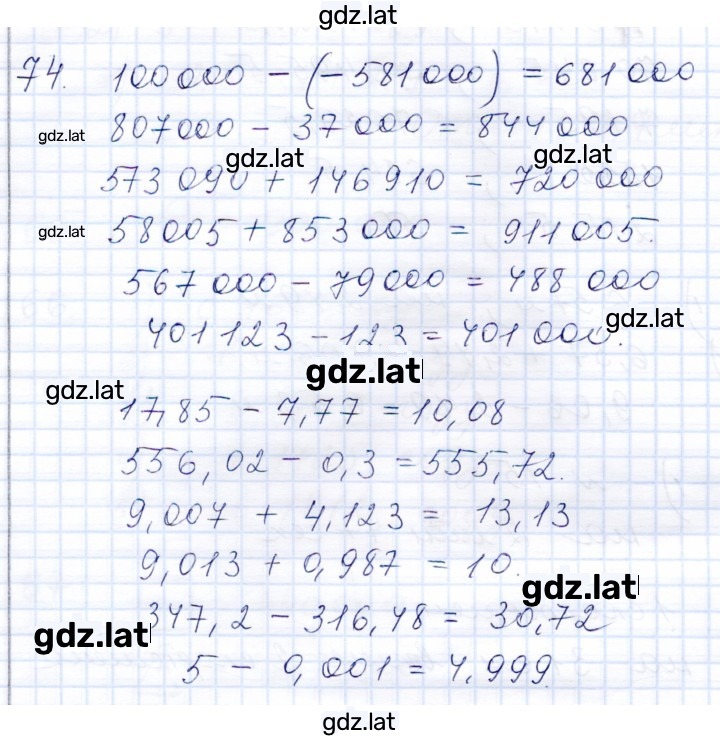 gdz.lat
74. 100 000 - (-581 000) = 681 000
gdz.lat 807000 - 37 000 = 844 000
gdz.lat gdz.lat
573 090 + 146 910 = 720 000
gdz.lat 58005 + 853 000 = 911 005.
567 000 - 79000 = 488 000
gdz.lat
401 123 - 123 = 401 000.
gdz.lat
gdz.lat
17,85 - 7,77 = 10,08
556,02 - 0,3 = 555,72.
9,007 + 4,123 = 13,13
9,013 + 0,987 = 10.
gdz.lat
347,2 - 316,48 = 30,72
gdz.lat
5 - 0,001 = 4,999.
gdz.lat